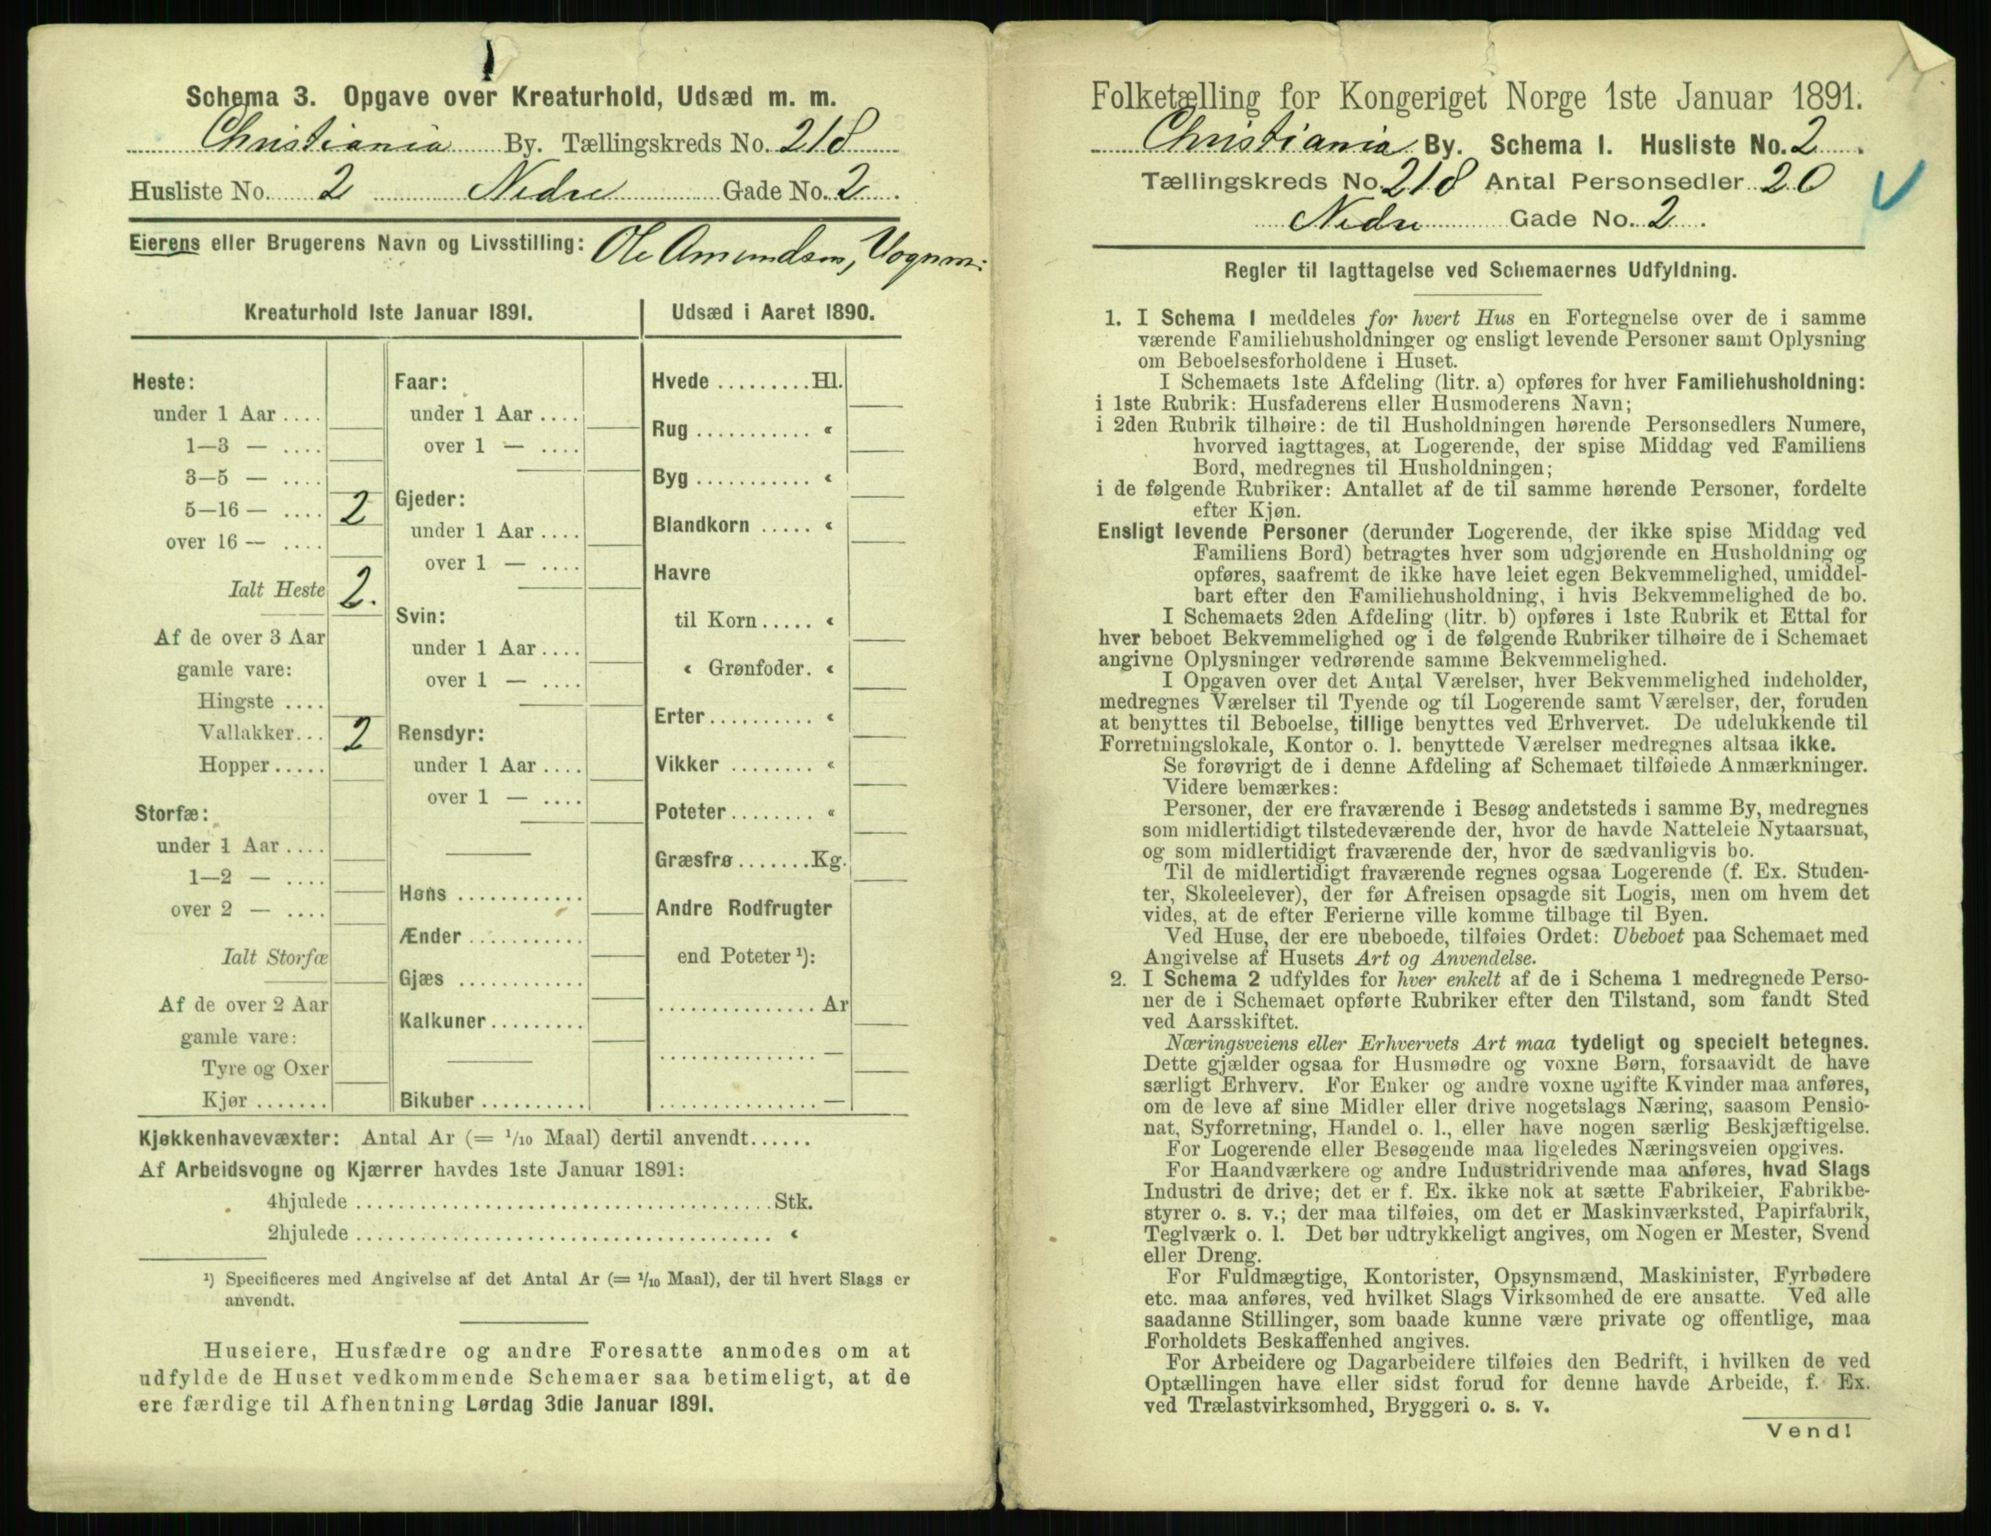 Schema 3. Opgave over Kreaturhold, Udsæd m. m.
Christiania By. Tællingskreds No. 218
Husliste No. 2 Nedre Gade No. 2.
Eierens eller Brugerens Navn og Livsstilling: Ole Amundsen, Vognm:
Kreaturhold 1ste Januar 1891.
Heste:
under 1 Aar ....
1—3 — ....
3—5 — ....
5—16 — .... 2
over 16 — ....
Ialt Heste 2.
Af de over 3 Aar
gamle vare:
Hingste ....
Vallakker... 2
Hopper.....
Storfæ:
under 1 Aar ....
1—2 — ....
over 2 — ....
Ialt Storfæ
Af de over 2 Aar
gamle vare:
Tyre og Oxer
Kjør .......
Faar:
under 1 Aar ....
over 1 — ....
Gjeder:
under 1 Aar ....
over 1 — ....
Svin:
under 1 Aar ....
over 1 — ....
Rensdyr:
under 1 Aar ....
over 1 — ....
Høns ............
Ænder ...........
Gjæs ............
Kalkuner.........
Bikuber ..........
Udsæd i Aaret 1890.
Hvede .........Hl.
Rug ........... «
Byg ........... «
Blandkorn ..... «
Havre
til Korn..... «
« Grønfoder. «
Erter.......... «
Vikker ........ «
Poteter........ «
Græsfrø .......Kg.
Andre Rodfrugter
end Poteter ¹):
............... Ar
............... —
............... —
Kjøkkenhavevæxter: Antal Ar (= 1/10 Maal) dertil anvendt......
Af Arbeidsvogne og Kjærrer havdes 1ste Januar 1891:
4hjulede ........................................Stk.
2hjulede ........................................ «
¹) Specificeres med Angivelse af det Antal Ar (= 1/10 Maal), der til hvert Slags er
anvendt.
Huseiere, Husfædre og andre Foresatte anmodes om at
udfylde de Huset vedkommende Schemaer saa betimeligt, at de
ere færdige til Afhentning Lørdag 3die Januar 1891.
Folketælling for Kongeriget Norge 1ste Januar 1891.
Christiania By. Schema I. Husliste No. 2.
Tællingskreds No. 218 Antal Personsedler 20
Nedre Gade No. 2.
Regler til Iagttagelse ved Schemaernes Udfyldning.
1. I Schema 1 meddeles for hvert Hus en Fortegnelse over de i samme
værende Familiehusholdninger og ensligt levende Personer samt Oplysning
om Beboelsesforholdene i Huset.
I Schemaets 1ste Afdeling (litr. a) opføres for hver Familiehusholdning:
i 1ste Rubrik: Husfaderens eller Husmoderens Navn;
i 2den Rubrik tilhøire: de til Husholdningen hørende Personsedlers Numere,
hvorved iagttages, at Logerende, der spise Middag ved Familiens
Bord, medregnes til Husholdningen;
i de følgende Rubriker: Antallet af de til samme hørende Personer, fordelte
efter Kjøn.
Ensligt levende Personer (derunder Logerende, der ikke spise Middag ved
Familiens Bord) betragtes hver som udgjørende en Husholdning og
opføres, saafremt de ikke have leiet egen Bekvemmelighed, umiddel-
bart efter den Familiehusholdning, i hvis Bekvemmelighed de bo.
I Schemaets 2den Afdeling (litr. b) opføres i 1ste Rubrik et Ettal for
hver beboet Bekvemmelighed og i de følgende Rubriker tilhøire de i Schemaet
angivne Oplysninger vedrørende samme Bekvemmelighed.
I Opgaven over det Antal Værelser, hver Bekvemmelighed indeholder,
medregnes Værelser til Tyende og til Logerende samt Værelser, der, foruden
at benyttes til Beboelse, tillige benyttes ved Erhvervet. De udelukkende til
Forretningslokale, Kontor o. l. benyttede Værelser medregnes altsaa ikke.
Se forøvrigt de i denne Afdeling af Schemaet tilføiede Anmærkninger.
Videre bemærkes:
Personer, der ere fraværende i Besøg andetsteds i samme By, medregnes
som midlertidigt tilstedeværende der, hvor de havde Natteleie Nytaarsnat,
og som midlertidigt fraværende der, hvor de sædvanligvis bo.
Til de midlertidigt fraværende regnes ogsaa Logerende (f. Ex. Studen-
ter, Skoleelever), der før Afreisen opsagde sit Logis, men om hvem det
vides, at de efter Ferierne ville komme tilbage til Byen.
Ved Huse, der ere ubeboede, tilføies Ordet: Ubeboet paa Schemaet med
Angivelse af Husets Art og Anvendelse.
2. I Schema 2 udfyldes for hver enkelt af de i Schema 1 medregnede Perso-
ner de i Schemaet opførte Rubriker efter den Tilstand, som fandt Sted
ved Aarsskiftet.
Næringsveiens eller Erhvervets Art maa tydeligt og specielt betegnes.
Dette gjælder ogsaa for Husmødre og voxne Børn, forsaavidt de have
særligt Erhverv. For Enker og andre voxne ugifte Kvinder maa anføres,
om de leve af sine Midler eller drive nogetslags Næring, saasom Pensio-
nat, Syforretning, Handel o. l., eller have nogen særlig Beskjæftigelse.
For Logerende eller Besøgende maa ligeledes Næringsveien opgives.
For Haandværkere og andre Industridrivende maa anføres, hvad Slags
Industri de drive; det er f. Ex. ikke nok at sætte Fabrikeier, Fabrikbe-
styrer o. s. v.; der maa tilføies, om det er Maskinværksted, Papirfabrik,
Teglværk o. l. Det bør udtrykkeligt angives, om Nogen er Mester, Svend
eller Dreng.
For Fuldmægtige, Kontorister, Opsynsmænd, Maskinister, Fyrbødere
etc. maa anføres, ved hvilket Slags Virksomhed de ere ansatte. Ved alle
saadanne Stillinger, som baade kunne være private og offentlige, maa
Forholdets Beskaffenhed angives.
For Arbeidere og Dagarbeidere tilføies den Bedrift, i hvilken de ved
Optællingen have eller sidst forud for denne havde Arbeide, f. Ex.
ved Trælastvirksomhed, Bryggeri o. s. v.
Vend!